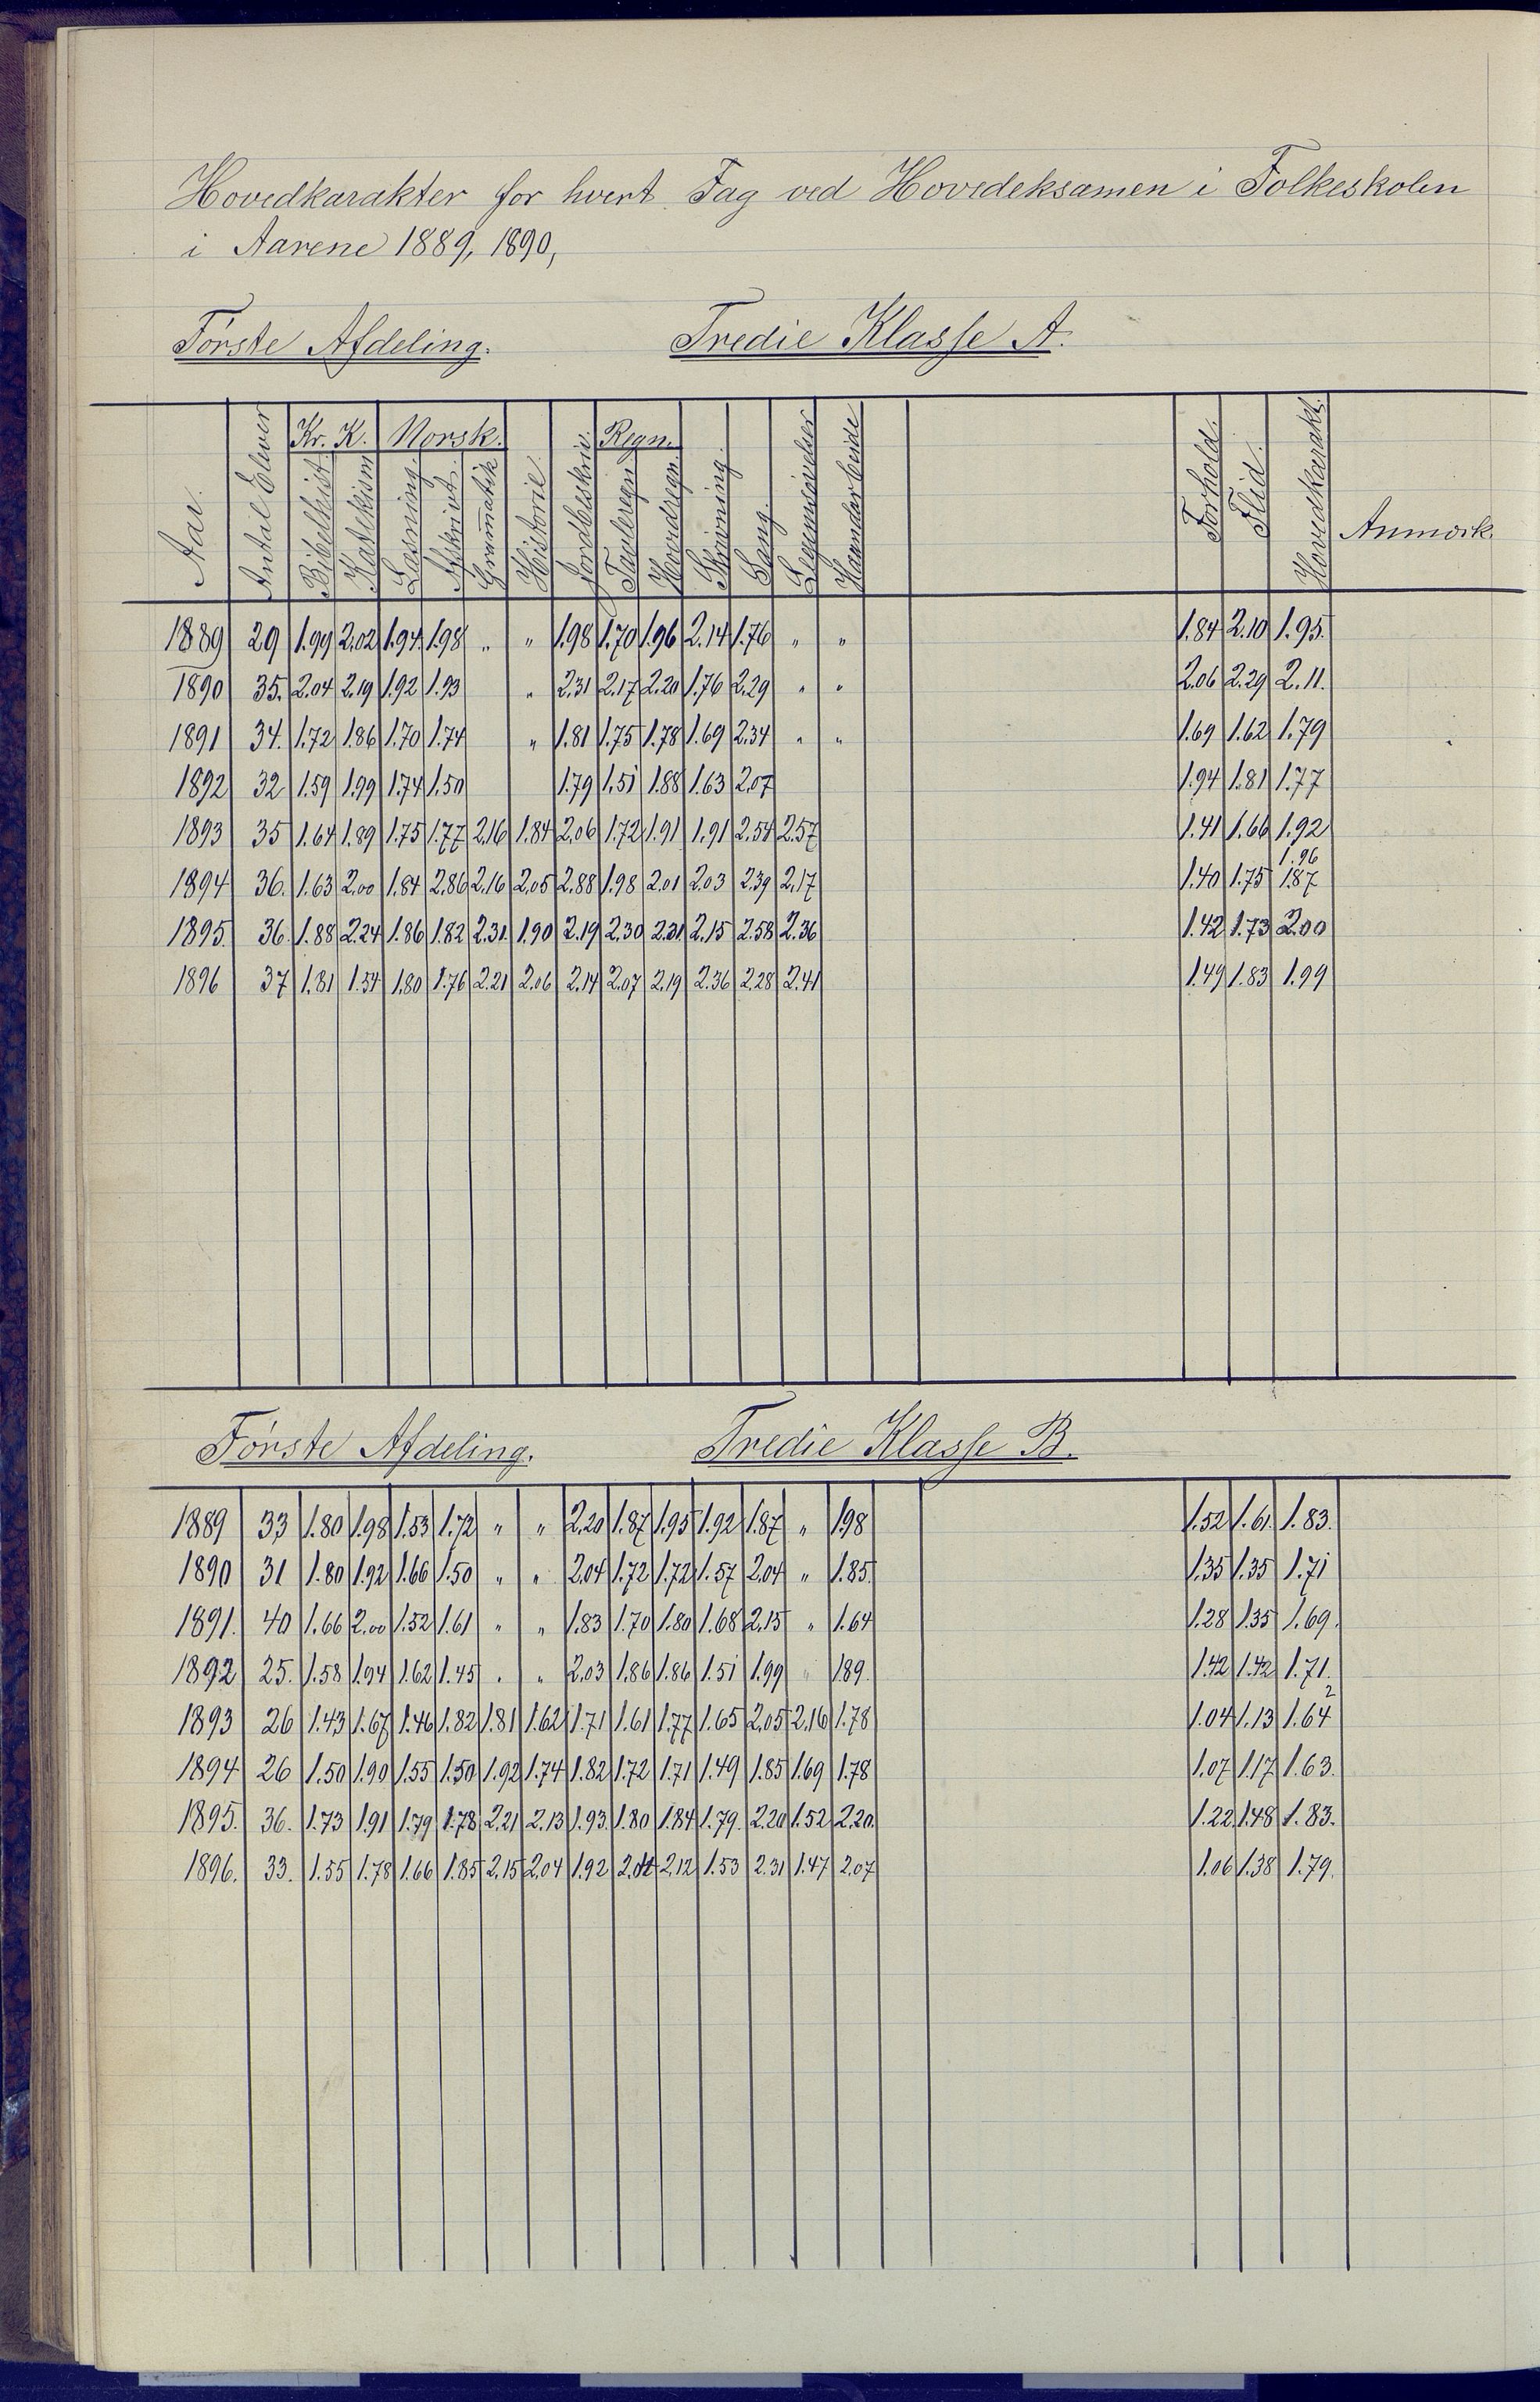 Hovedkarakter for hvert Fag ved Hovedeksamen i Folkeskolen
i Aarene 1889, 1890,
Förste Afdeling. Tredie Klasse A.
Kr. K. Norsk. Regn.
Aar. Antal Elever Bibelhist. Katekism Læsning. Afskrivt. Grammatik Historie Jordbeskriv. Tavleregn Hovedregn. Skrivning. Sang. Legemsövelser Haandarbeide Forhold. Flid. Hovedkarakt. Anmærk.
1889 29 1.99 2.02 1.94. 1.98 " " 1.98 1.70 1.96 2.14 1.76 " " 1.84 2.10 1.95.
1890 35. 2.04 2.19 1.92 1.93 " 2.31 2.17 2.20 1.76 2.29 " " 2.06 2.29 2.11.
1891 34. 1.72 1.86 1.70 1.74 " 1.81 1.75 1.78 1.69 2.34 " " 1.69 1.62 1.79
1892 32 1.59 1.99 1.74 1.50 1.79 1.51 1.88 1.63 2.07 1.94 1.81 1.77
1893 35 1.64 1.89 1.75 1.77 2.16 1.84 2.06 1.72 1.91 1.91 2.54 2.57 1.41 1.66 1.92
1.96
1894 36. 1.63 2.00 1.84 2.86 2.16 2.05 2.88 1.98 2.01 2.03 2.39 2.17 1.40 1.75 1.87
1895. 36 1.88 2.24 1.86 1.82 2.31 1.90 2.19 2.30 2.31 2.15 2.58 2.36 1.42 1.73 2.00
1896 37 1.81 1.54 1.80 1.76 2.21 2.06 2.14 2.07 2.19 2.36 2.28 2.41 1.49 1.83 1.99
Förste Afdeling. Tredie Klasse B.
1889 33 1.80 1.98 1.53 1.72 " " 2.20 1.87 1.95 1.92 1.87 " 1.98 1.52 1.61. 1.83.
1890 31 1.80 1.92 1.66 1.50 " " 2.04 1.72 1.72 1.57 2.04 " 1.85. 1.35 1.35 1.71
1891. 40 1.66 2.00 1.52 1.61 " " 1.83 1.70 1.80 1.68 2.15 " 1.64 1.28 1.35 1.69.
1892 25. 1.58 1.94 1.62 1.45 " " 2.03 1.86 1.86 1.51 1.99 " 1.89. 1.42 1.42 1.71.
1893 26 1.43 1.67 1.46 1.82 1.81 1.62 1.71 1.61 1.77 1.65 2.05 2.16 1.78 1.04 1.13 1.64 2
1894 26 1.50 1.90 1.55 1.50 1.92 1.74 1.82 1.72 1.71 1.49 1.85 1.69 1.78 1.07 1.17 1.63.
1895. 36. 1.73 1.91 1.79 1.78 2.21 2.13 1.93. 1.80 1.84 1.79. 2.20 1.52 2.20. 1.22 1.48 1.83.
1896. 33. 1.55 1.78 1.66 1.85 2.15 2.04 1.92 2.12 1.53 2.31 1.47 2.07 1.06 1.38 1.79.